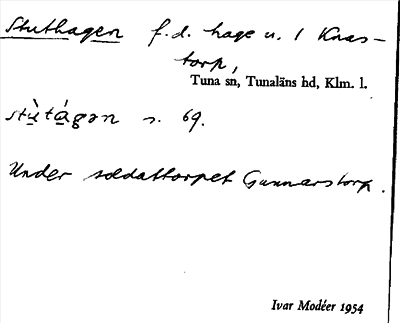 Stuthagen f.d. hage u. 1 Knas-
torp,
Tuna sn, Tunaläns hd, Klm. l.
stù̀tágən s. 69.
Under soldattorpet Gunnarstorp.
Ivar Modéer 1954